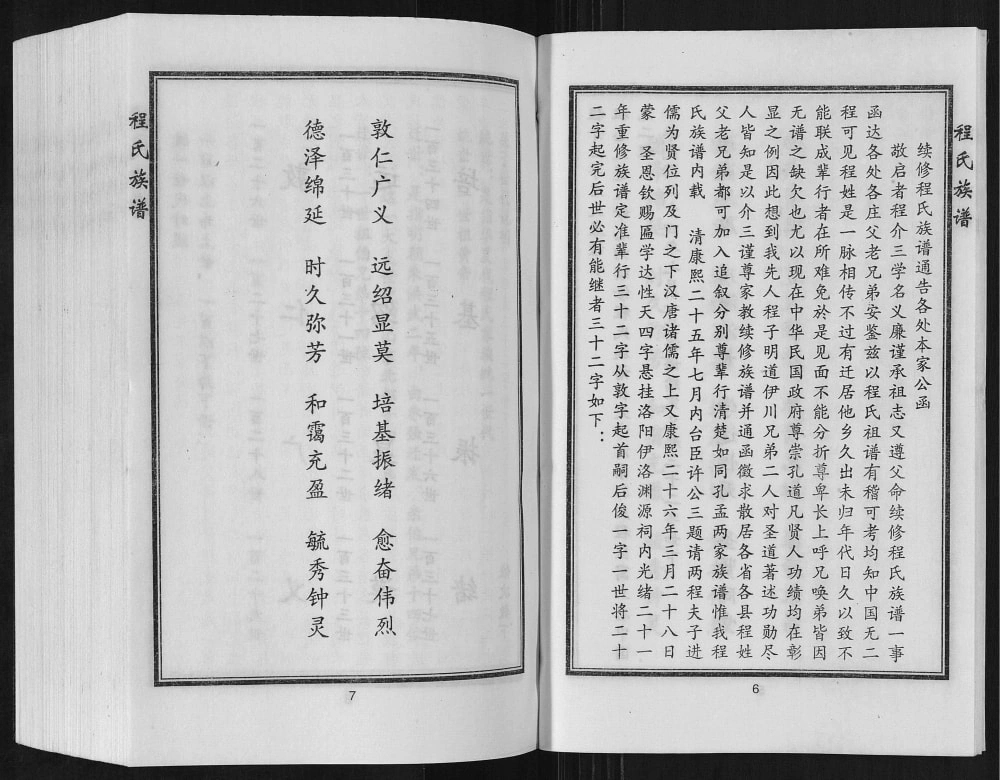 程氏族谱
续修程氏族谱通告各处本家公函
敬启者程介三学名义廉谨承祖志又遵父命续修程氏族谱一事
函达各处各庄父老兄弟安鉴兹以程氏祖谱有稽可考均知中国无二
程可见程姓是一脉相传不过有迁居他乡久出未归年代日久以致不
能联成辈行者在所难免於是见面不能分折尊卑长上呼兄唤弟皆因
无谱之缺欠也尤以现在中华民国政府尊崇孔道凡贤人功绩均在彰
显之例因此想到我先人程子明道伊川兄弟二人对圣道著述功勋尽
人皆知是以介三谨尊家教续修族谱并通函徵求散居各省各县程姓
父老兄弟都可加入追叙分别尊辈行清楚如同孔孟两家族谱惟我程
氏族谱内载 清康熙二十五年七月内台臣许公三题请两程夫子进
儒为贤位列及门之下汉唐诸儒之上又康熙二十六年三月二十八日
蒙 圣恩钦赐匾学达性天四字悬挂洛阳伊洛渊源祠内光绪二十一
年重修族谱定准辈行三十二字从敦字起首嗣后俊一字一世将二十
二字起完后世必有能继者三十二字如下：
6
敦仁广义 远绍显莫 培基振绪 愈奋伟烈
德泽绵延 时久弥芳 和霭充盈 毓秀钟灵
程氏族谱
7